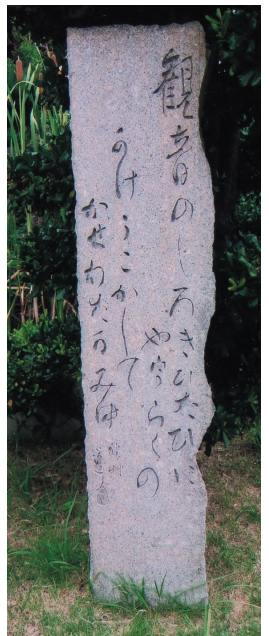 観音のしろきひたひに
やうらくの
かけうこかして
かせわたるみゆ
秋艸
道人